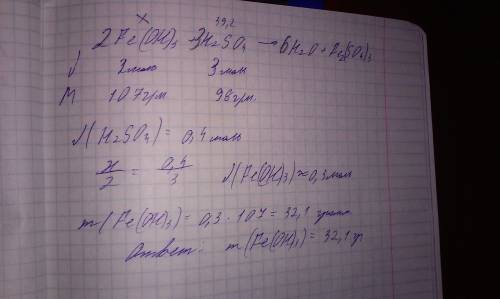 x 39,2
2Fe(OH)3 + 3H2SO4 → 6H2O + Fe2(SO4)3
ν 2моль 3моль
M 107гр 98гр.
ν(H2SO4) = 0,4 моль
x/2 = 0,4/3 ν(Fe(OH)3) ≈ 0,3моль
m(Fe(OH)3) = 0,3 · 107 = 32,1 грамм
Ответ: m(Fe(OH)3) = 32,1 гр